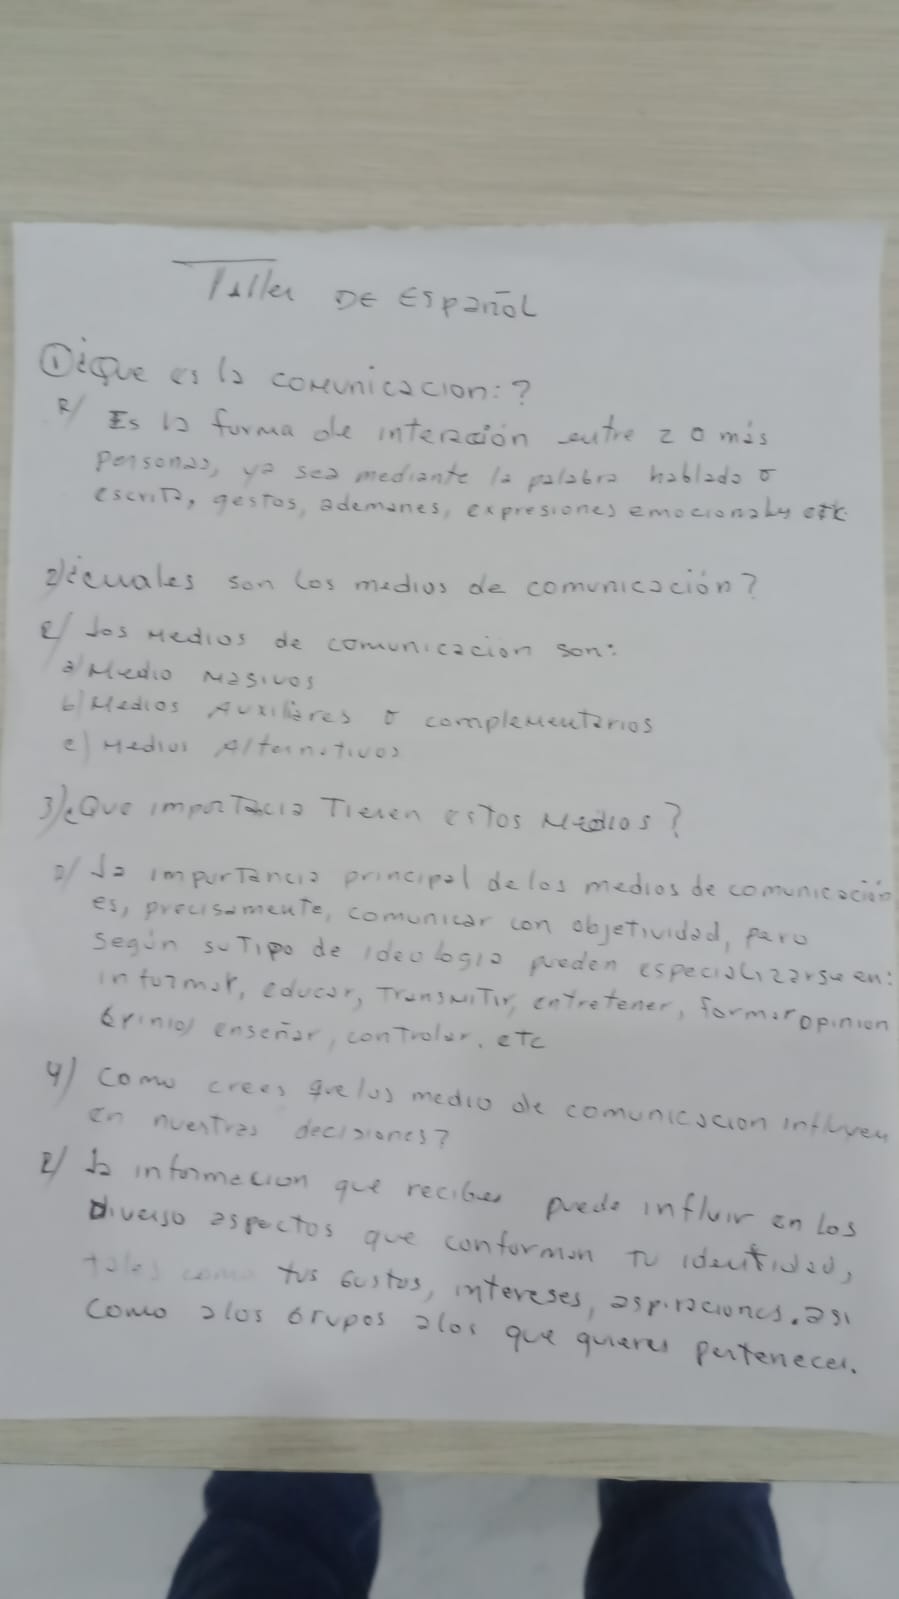 Taller DE Español
① ¿Que es la comunicacion:?
R/ Es la forma de interación entre 2 o más
personas, ya sea mediante la palabra hablada o
escrita, gestos, ademanes, expresiones emocionales etc.
2) ¿cuales son los medios de comunicación?
R/ Los Medios de comunicacion son:
a) Medio Masivos
b) Medios Auxiliares o complementarios
c) Medios Alternativos
3) ¿Que importacia Tienen estos Medios?
R/ La importancia principal de los medios de comunicación
es, precisamente, comunicar con objetividad, pero
según su Tipo de ideologia pueden especializarse en:
informar, educar, Transmitir, entretener, formar opinion
enseñar, controlar, etc
4) Como crees que los medio de comunicacion influyen
en nuestras decisiones?
R/ La informacion que recibes puede influir en los
diverso aspectos que conforman tu identidad,
tales como tus Gustos, intereses, aspiraciones. asi
como a los Grupos a los que quieres pertenecer.